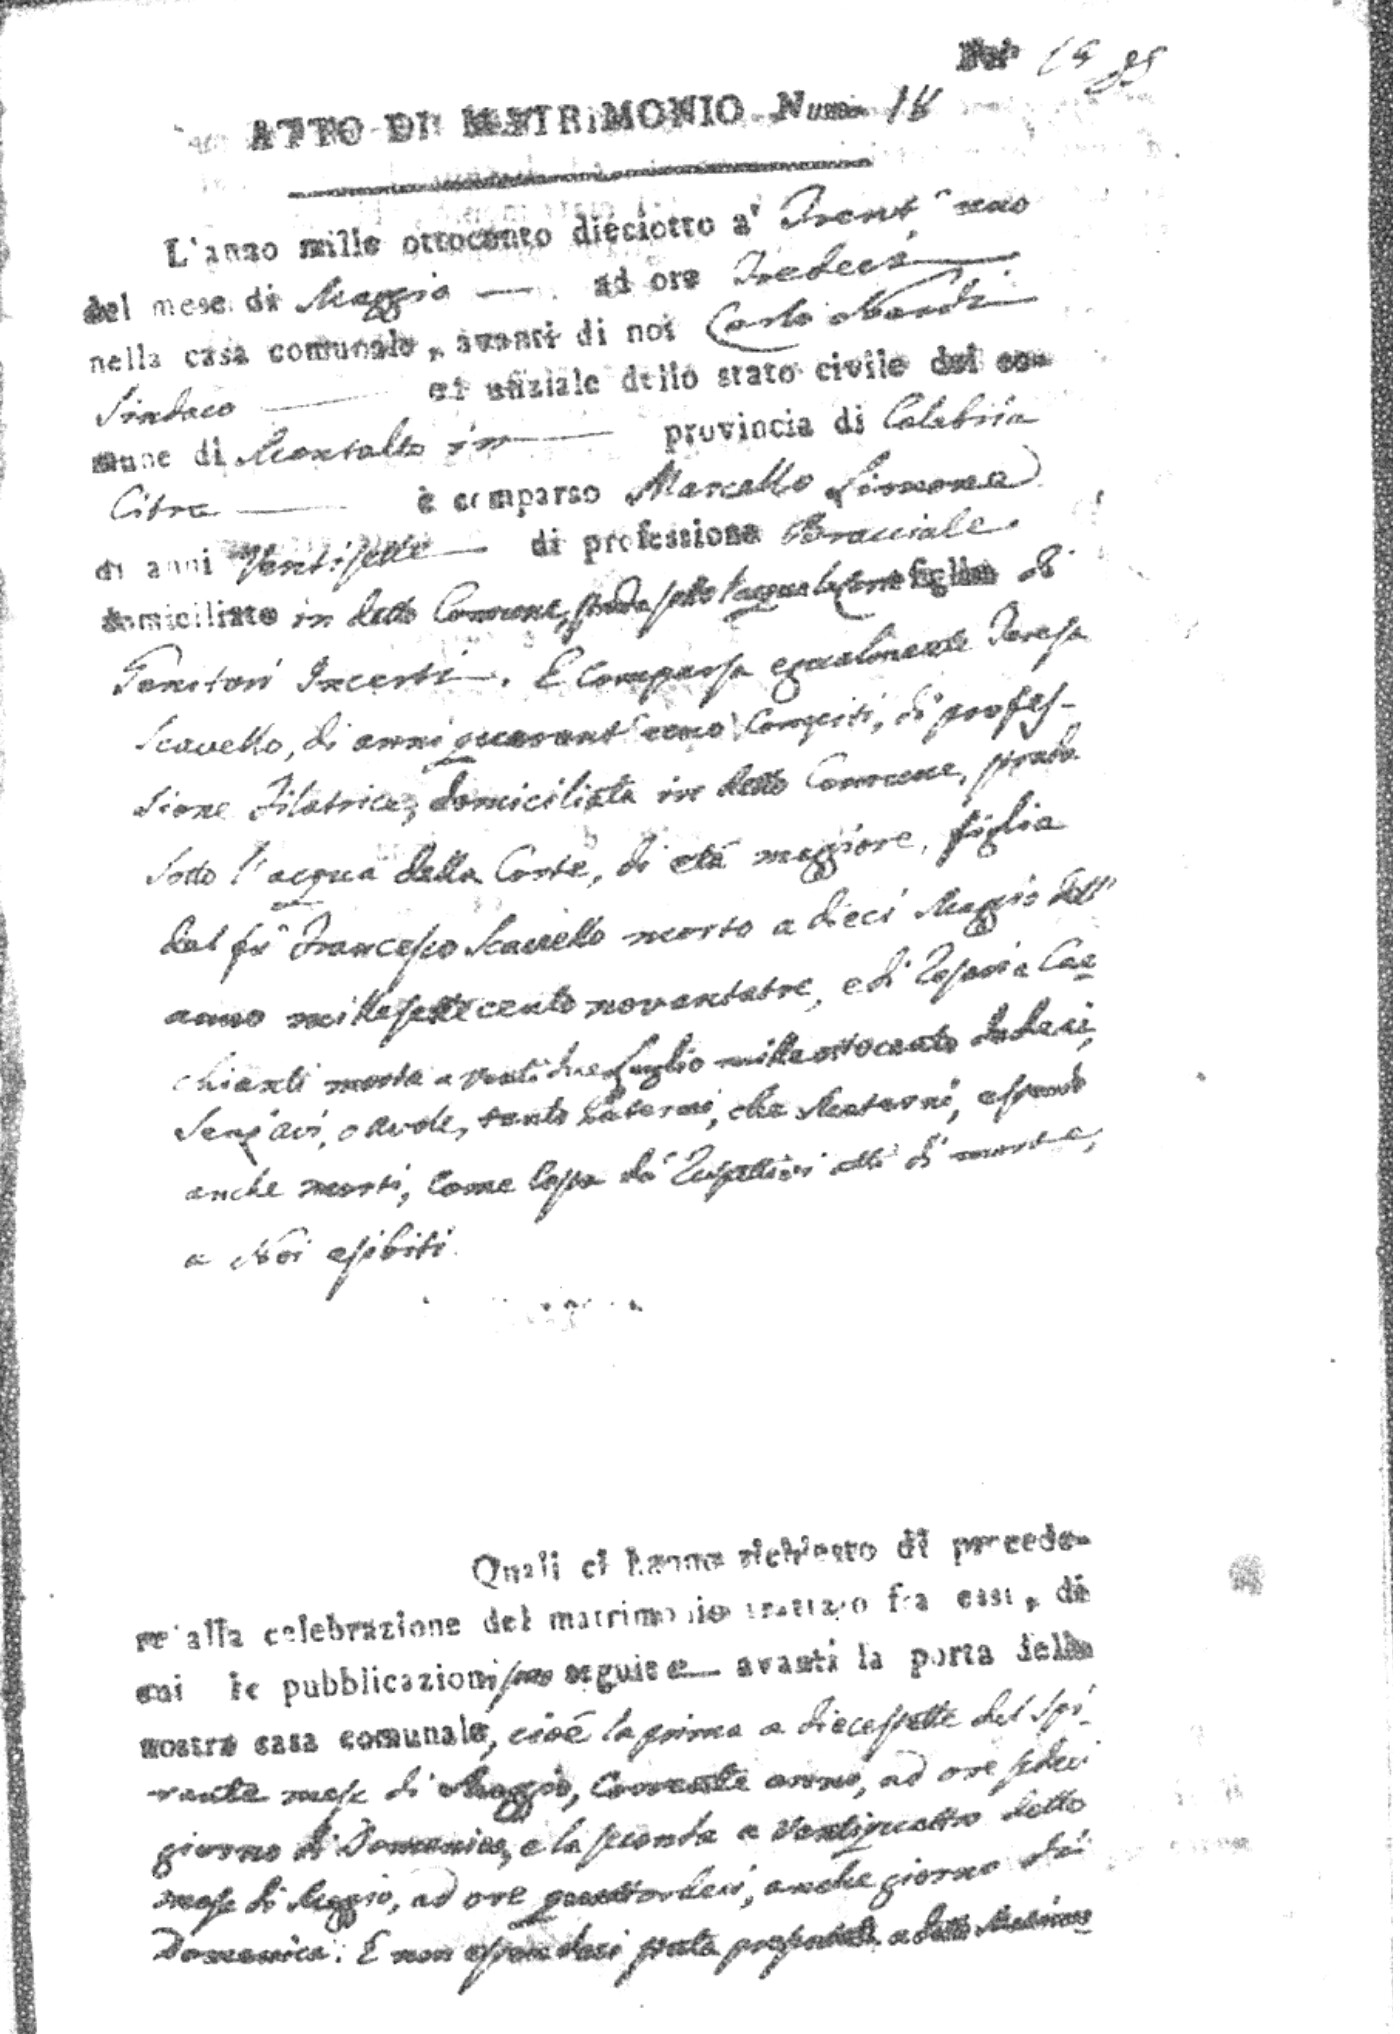 ATTO DI MATRIMONIO Num. 18
L'anno mille ottocento dieciotto a' Trent'uno
del mese di Maggio ad ore Tredeci
nella casa comunale, avanti di noi Carlo Nardi
Sindaco ed ufiziale dello stato civile del co-
mune di Montalto in provincia di Calabria
Citra è comparso Marcello Simone
di anni Ventisette di professione Bracciale
domiciliato in detto Comune, strada sotto l'acqua la Corte figlio di
Genitori Incerti. E comparsa egualmente Teresa
Scavello, di anni quarant'uno compiti, di profes-
sione Filatrice, domiciliata in detto Comune, strada
sotto l'acqua della Corte, di età maggiore, figlia
del fù Francesco Scavello morto a dieci Maggio dell'
anno millesettecento novantatre, e di Rosaria Cac
chianti morta a venti due Luglio mille ottocento dodeci,
senz'avi, o avole, tanto Paterni, che Materni, essendo
anche morti, come costa da' rispettivi atti di morte,
a Noi esibiti.
Quali ci hanno richiesto di procede-
re alla celebrazione del matrimonio trattato fra essi, di
cui le pubblicazioni sono seguite avanti la porta della
nostra casa comunale, cioè la prima a diecessette del spi-
rante mese di Maggio, corrente anno, ad ore sedeci
giorno di Domenica, e la seconda a ventiquattro detto
mese di Maggio, ad ore quattordeci, anche giorno di
Domenica. E non essendosi stata presentata a detto Matrimo